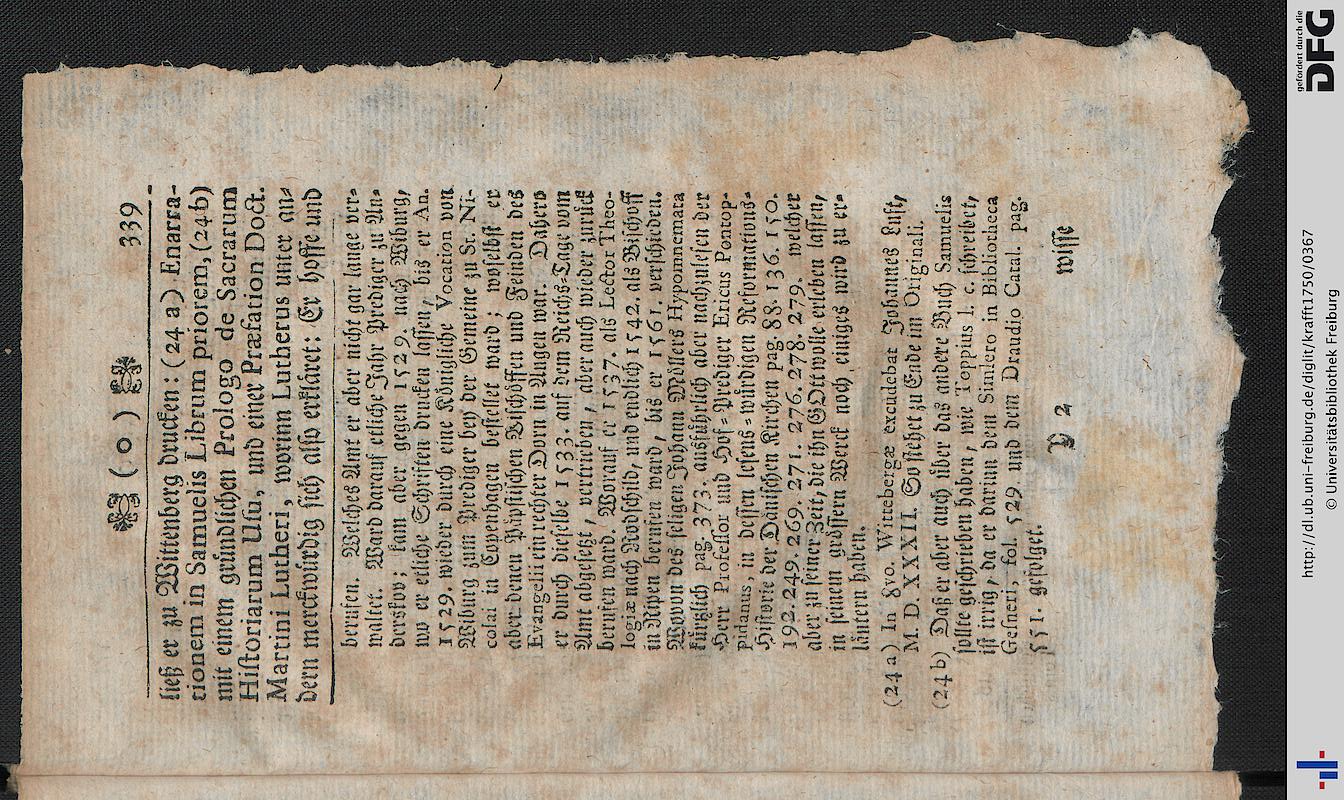 ( o ) 339
ließ er zu Wittenberg drucken: (24 a) Enarra-
tionem in Samuelis Librum priorem, (24 b)
mit einem gründlichen Prologo de Sacrarum
Historiarum Usu, und einer Præfation Doct.
Martini Lutheri, worinn Lutherus unter an-
dern merckwürdig sich also erkläret: Er hoffe und
beruffen. Welches Amt er aber nicht gar lange ver-
waltet. Ward darauf etliche Jahr Prediger zu An-
derskov; kam aber gegen 1529. nach Wiburg,
wo er etliche Schrifften drucken lassen, bis er An.
1529. wieder durch eine Königliche Vocation von
Wiburg zum Prediger bey der Gemeine zu St. Ni-
colai in Copenhagen bestellet ward; woselbst er
aber denen Päpstischen Bischöffen und Feinden des
Evangelii ein rechter Dorn in Augen war. Dahero
er durch dieselbe 1533. auf dem Reichs-Tage vom
Amt abgesetzt, vertrieben, aber auch wieder zurück
beruffen ward. Worauf er 1537. als Lector Theo-
logiæ nach Rodschild, und endlich 1542. als Bischoff
in Ripen beruffen ward, bis er 1561. verschieden.
Wovon des seligen Johann Möllers Hypomnemata
kürtzlich pag. 373. ausführlich aber nachzulesen der
Herr Professor und Hof-Prediger Ericus Pontop-
pidanus, in dessen lesens-würdigen Reformations-
Historie der Dänischen Kirchen pag. 88. 136. 150.
192. 249. 269. 271. 276. 278. 279. welcher
aber zu seiner Zeit, die ihn GOtt wolle erleben lassen,
in seinem grössern Werck noch einiges wird zu er-
läutern haben.
(24 a) In 8vo. Wittebergæ excudebat Johannes Lufft,
M. D. XXXII. So stehet zu Ende im Originali.
(24 b) Daß er aber auch über das andere Buch Samuelis
sollte geschrieben haben, wie Toppius l. c. schreibet,
ist irrig, da er darinn dem Simlero in Bibliotheca
Gesneri, fol. 529. und dem Draudio Catal. pag.
551. gefolget.
Y 2 wisse
gefördert durch die
DFG
http://dl.ub.uni-freiburg.de/diglit/krafft1750/0367
© Universitätsbibliothek Freiburg